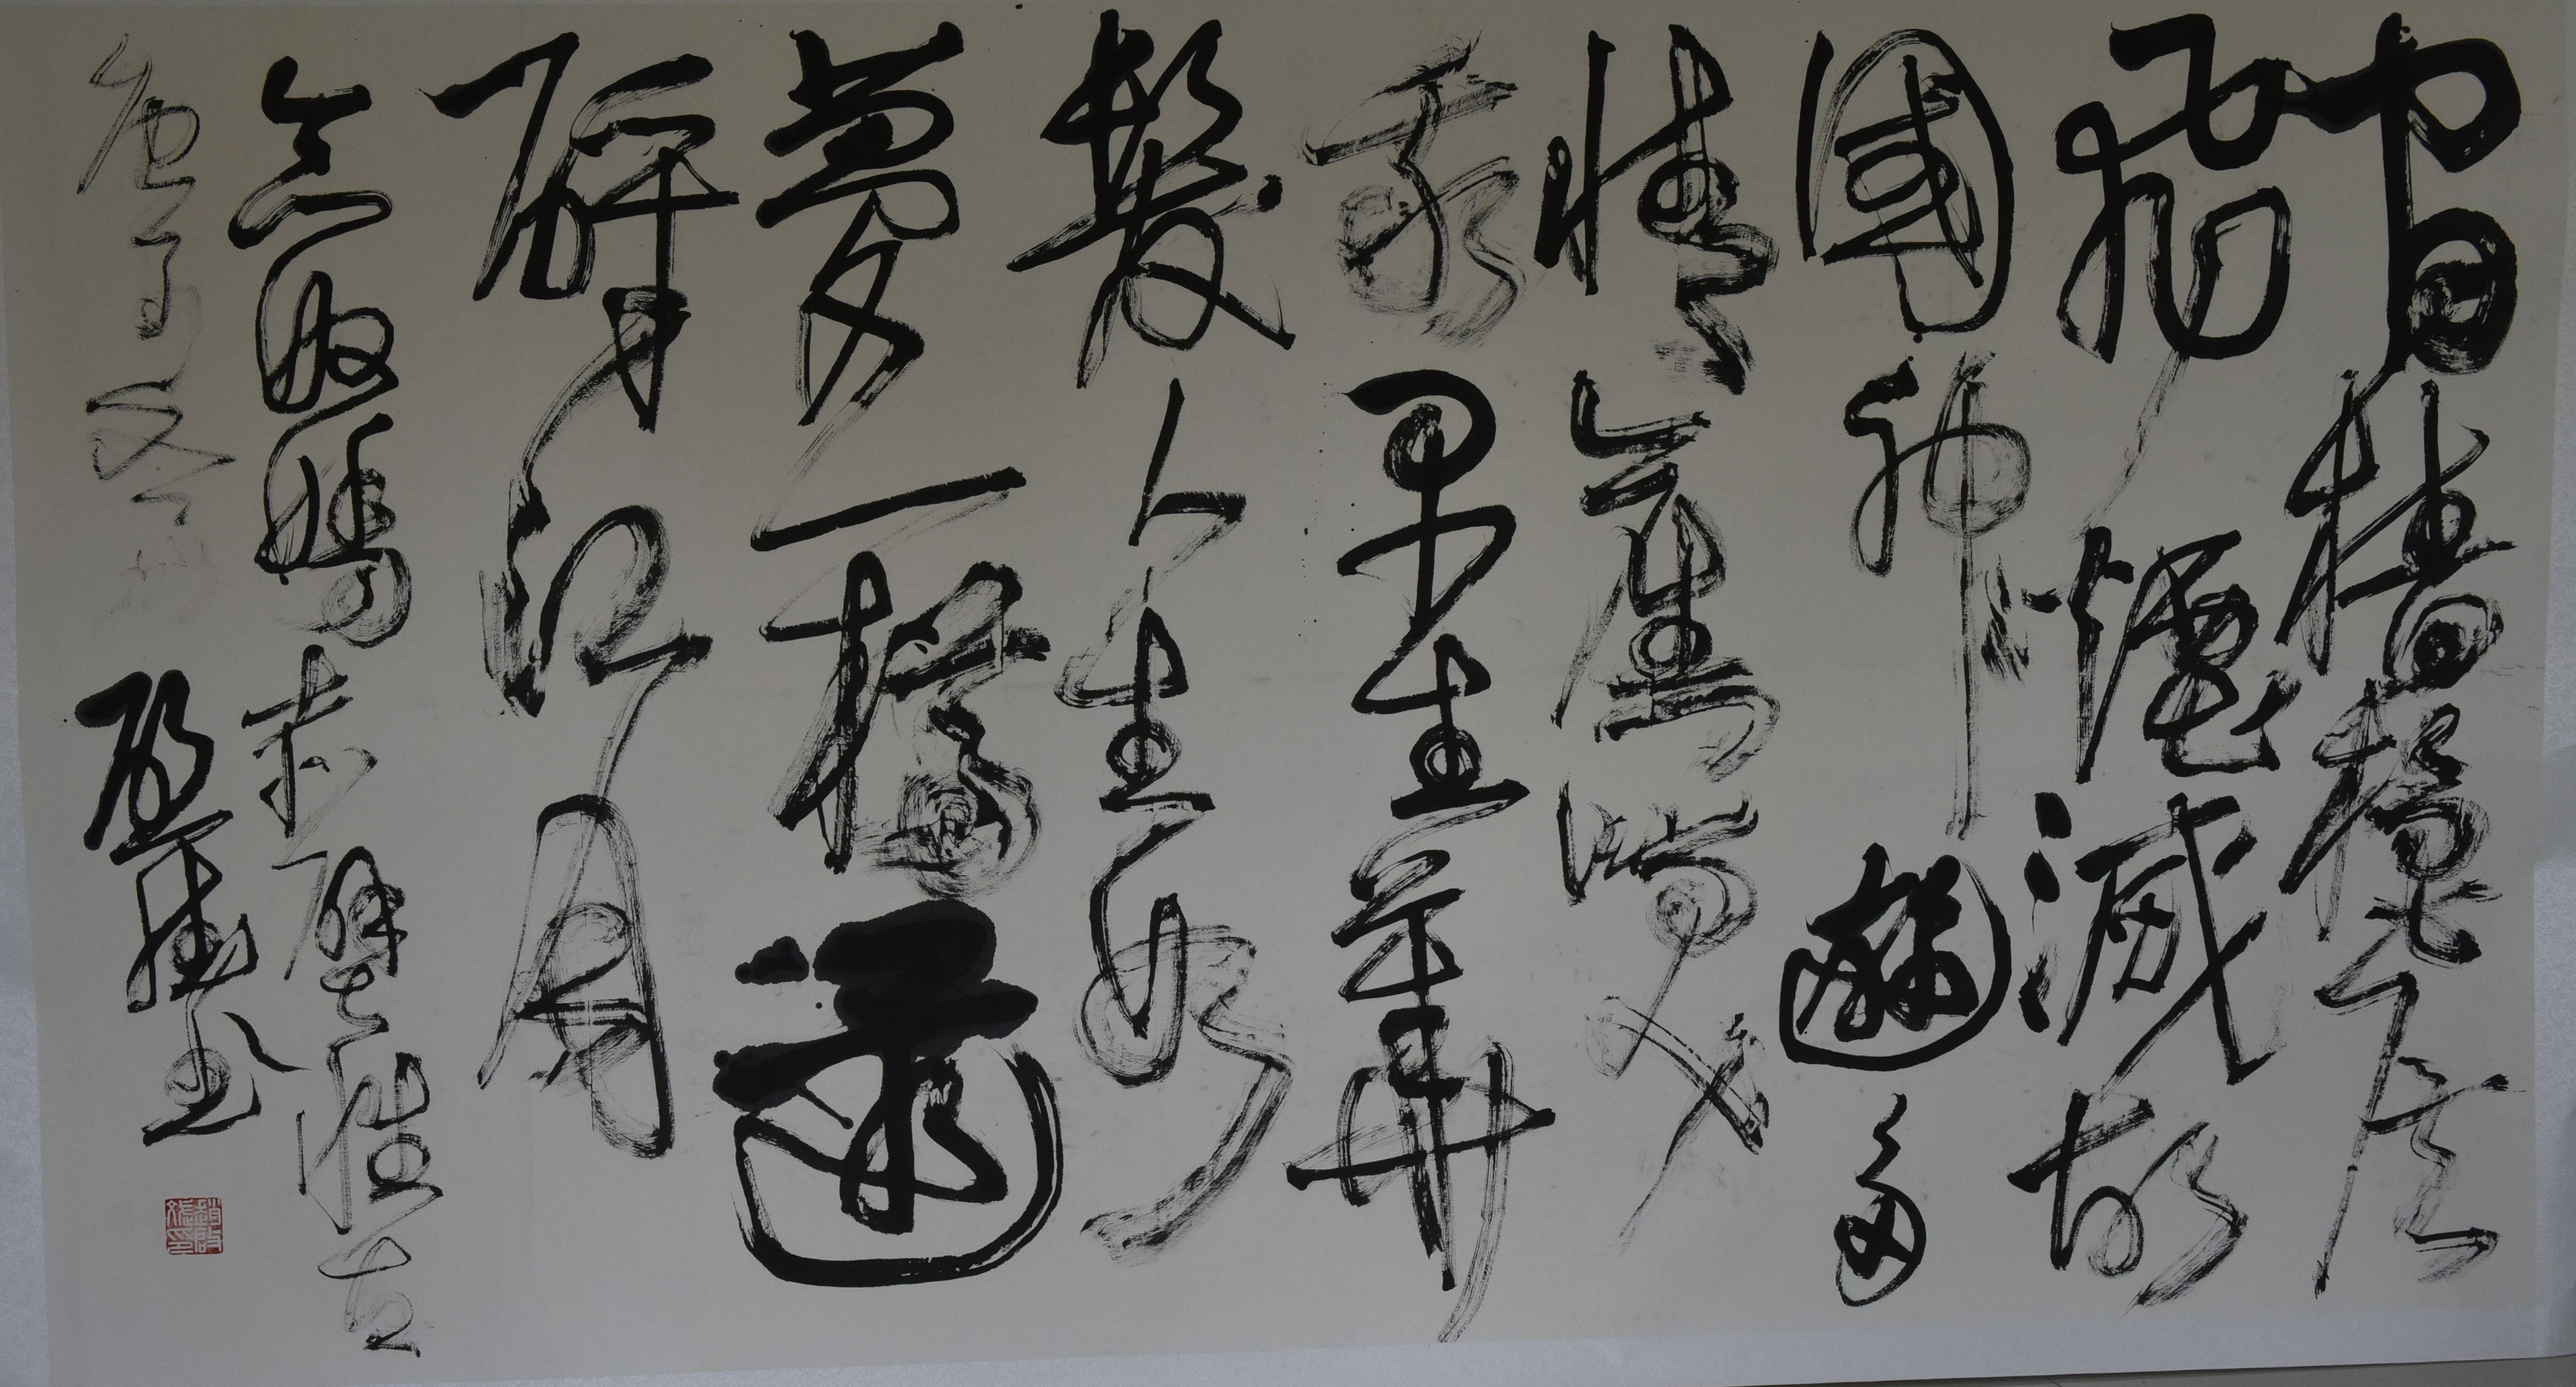 間檣櫓灰
飛煙滅故
國神遊多
情應笑
我早生華
髮人生如
夢一樽還
酹江月
念奴嬌赤壁懷古
庚子